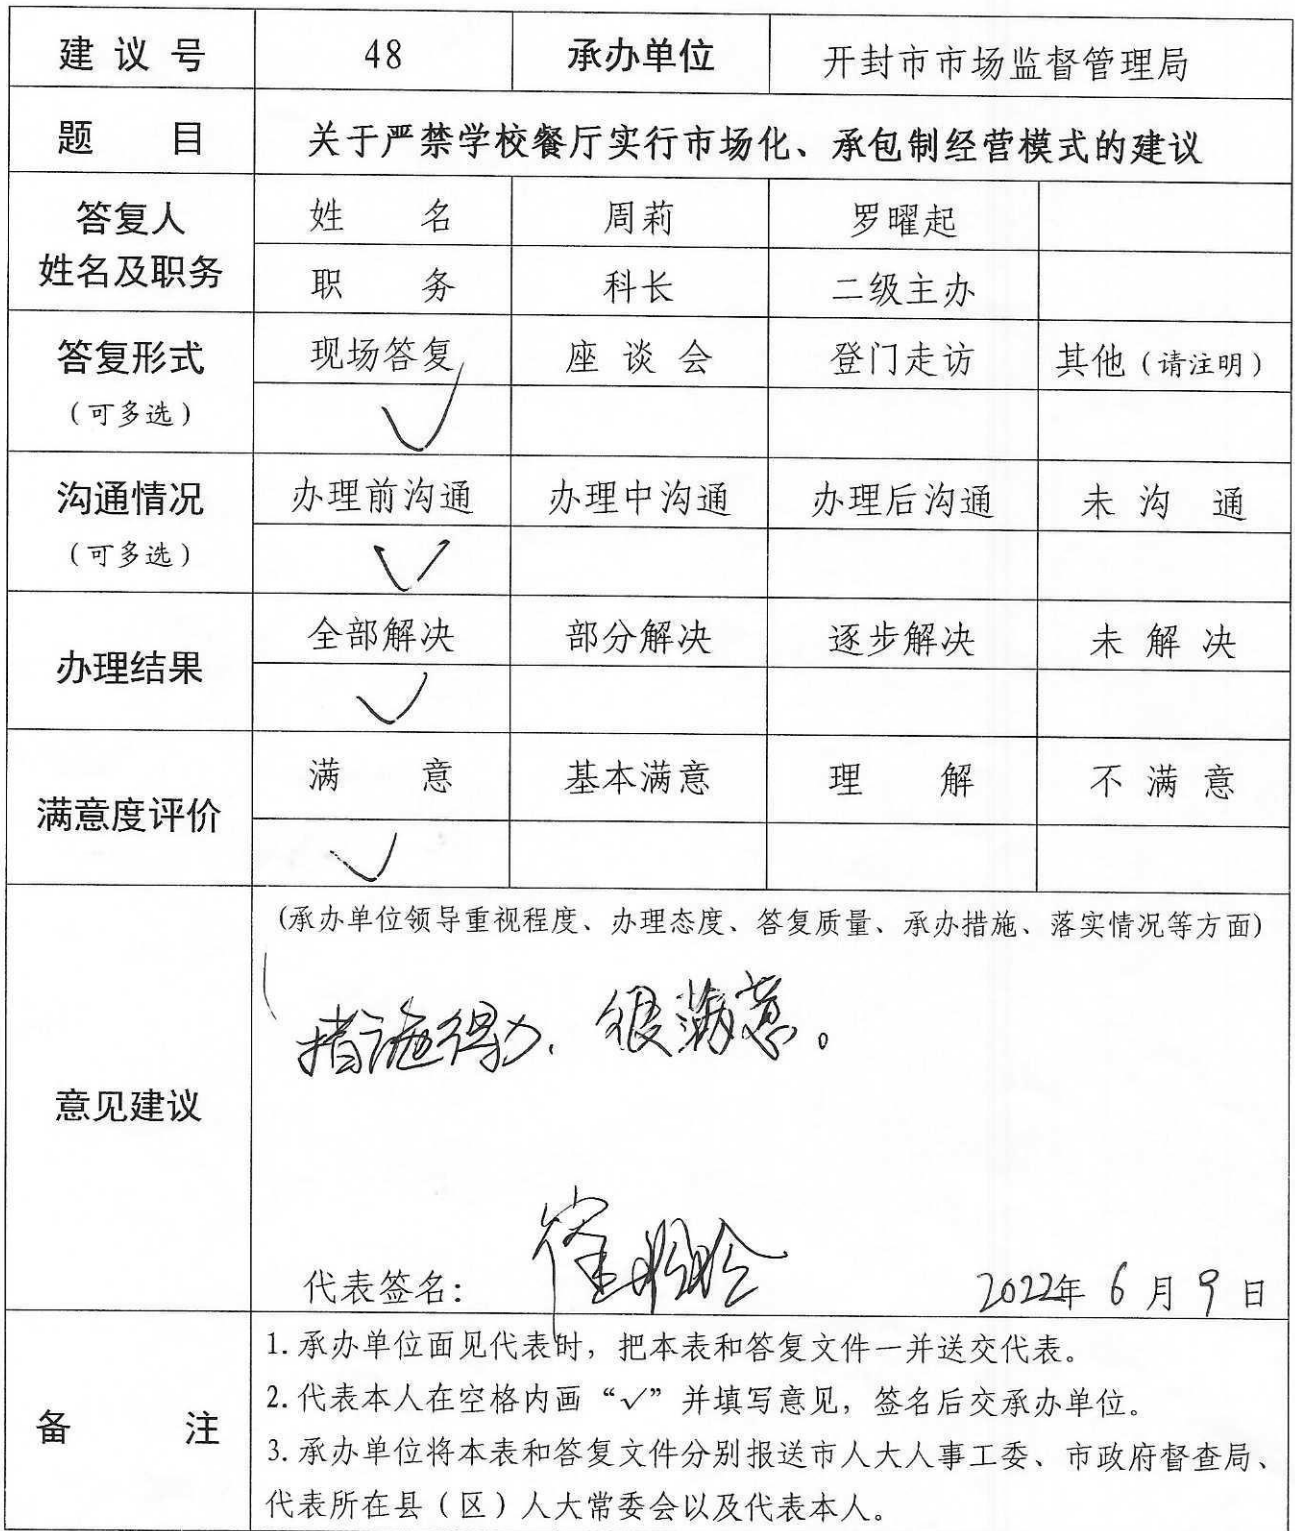 建议号 48 承办单位 开封市市场监督管理局
题 目 关于严禁学校餐厅实行市场化、承包制经营模式的建议
答复人 姓 名 周莉 罗曜起
姓名及职务 职 务 科长 二级主办
答复形式 现场答复 座谈会 登门走访 其他（请注明）
（可多选） √
沟通情况 办理前沟通 办理中沟通 办理后沟通 未沟 通
（可多选） √
办理结果 全部解决 部分解决 逐步解决 未解决
√
满意度评价 满 意 基本满意 理 解 不满意
√
(承办单位领导重视程度、办理态度、答复质量、承办措施、落实情况等方面)
措施得力、很满意。
意见建议
代表签名: 2022年6月9日
备 注
1.承办单位面见代表时，把本表和答复文件一并送交代表。
2.代表本人在空格内画“√”并填写意见，签名后交承办单位。
3.承办单位将本表和答复文件分别报送市人大人事工委、市政府督查局、
代表所在县（区）人大常委会以及代表本人。